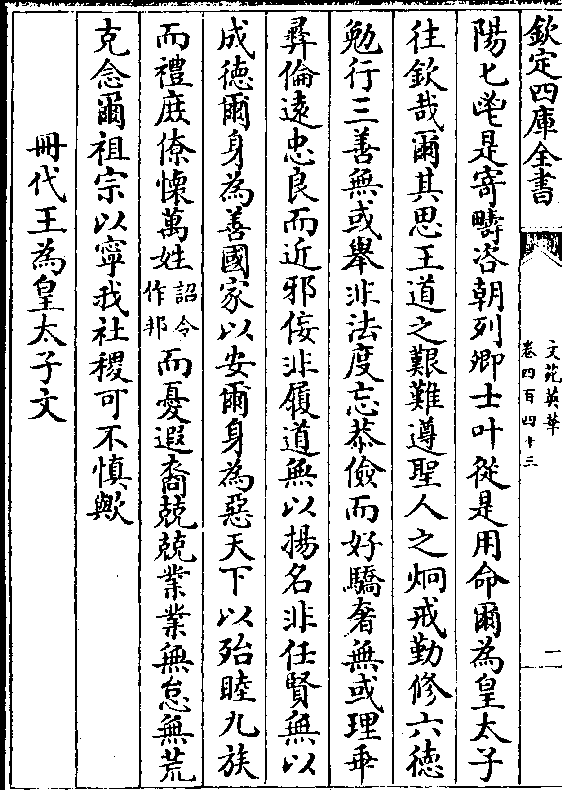 欽定四庫全書
文苑英華
卷四百四十三
二
陽七鬯是寄疇咨朝列卿士叶從是用命爾為皇太子
往欽哉爾其思王道之艱難遵聖人之炯戒勤修六德
勉行三善無或舉非法度忘恭儉而好驕奢無或理乖
彞倫遠忠良而近邪佞非履道無以揚名非任賢無以
成德爾身為善國家以安爾身為惡天下以殆睦九族
而禮庶僚懷萬姓詔令作邦而憂遐裔兢兢業業無怠無荒
克念爾祖宗以寧我社稷可不慎歟
冊代王為皇太子文